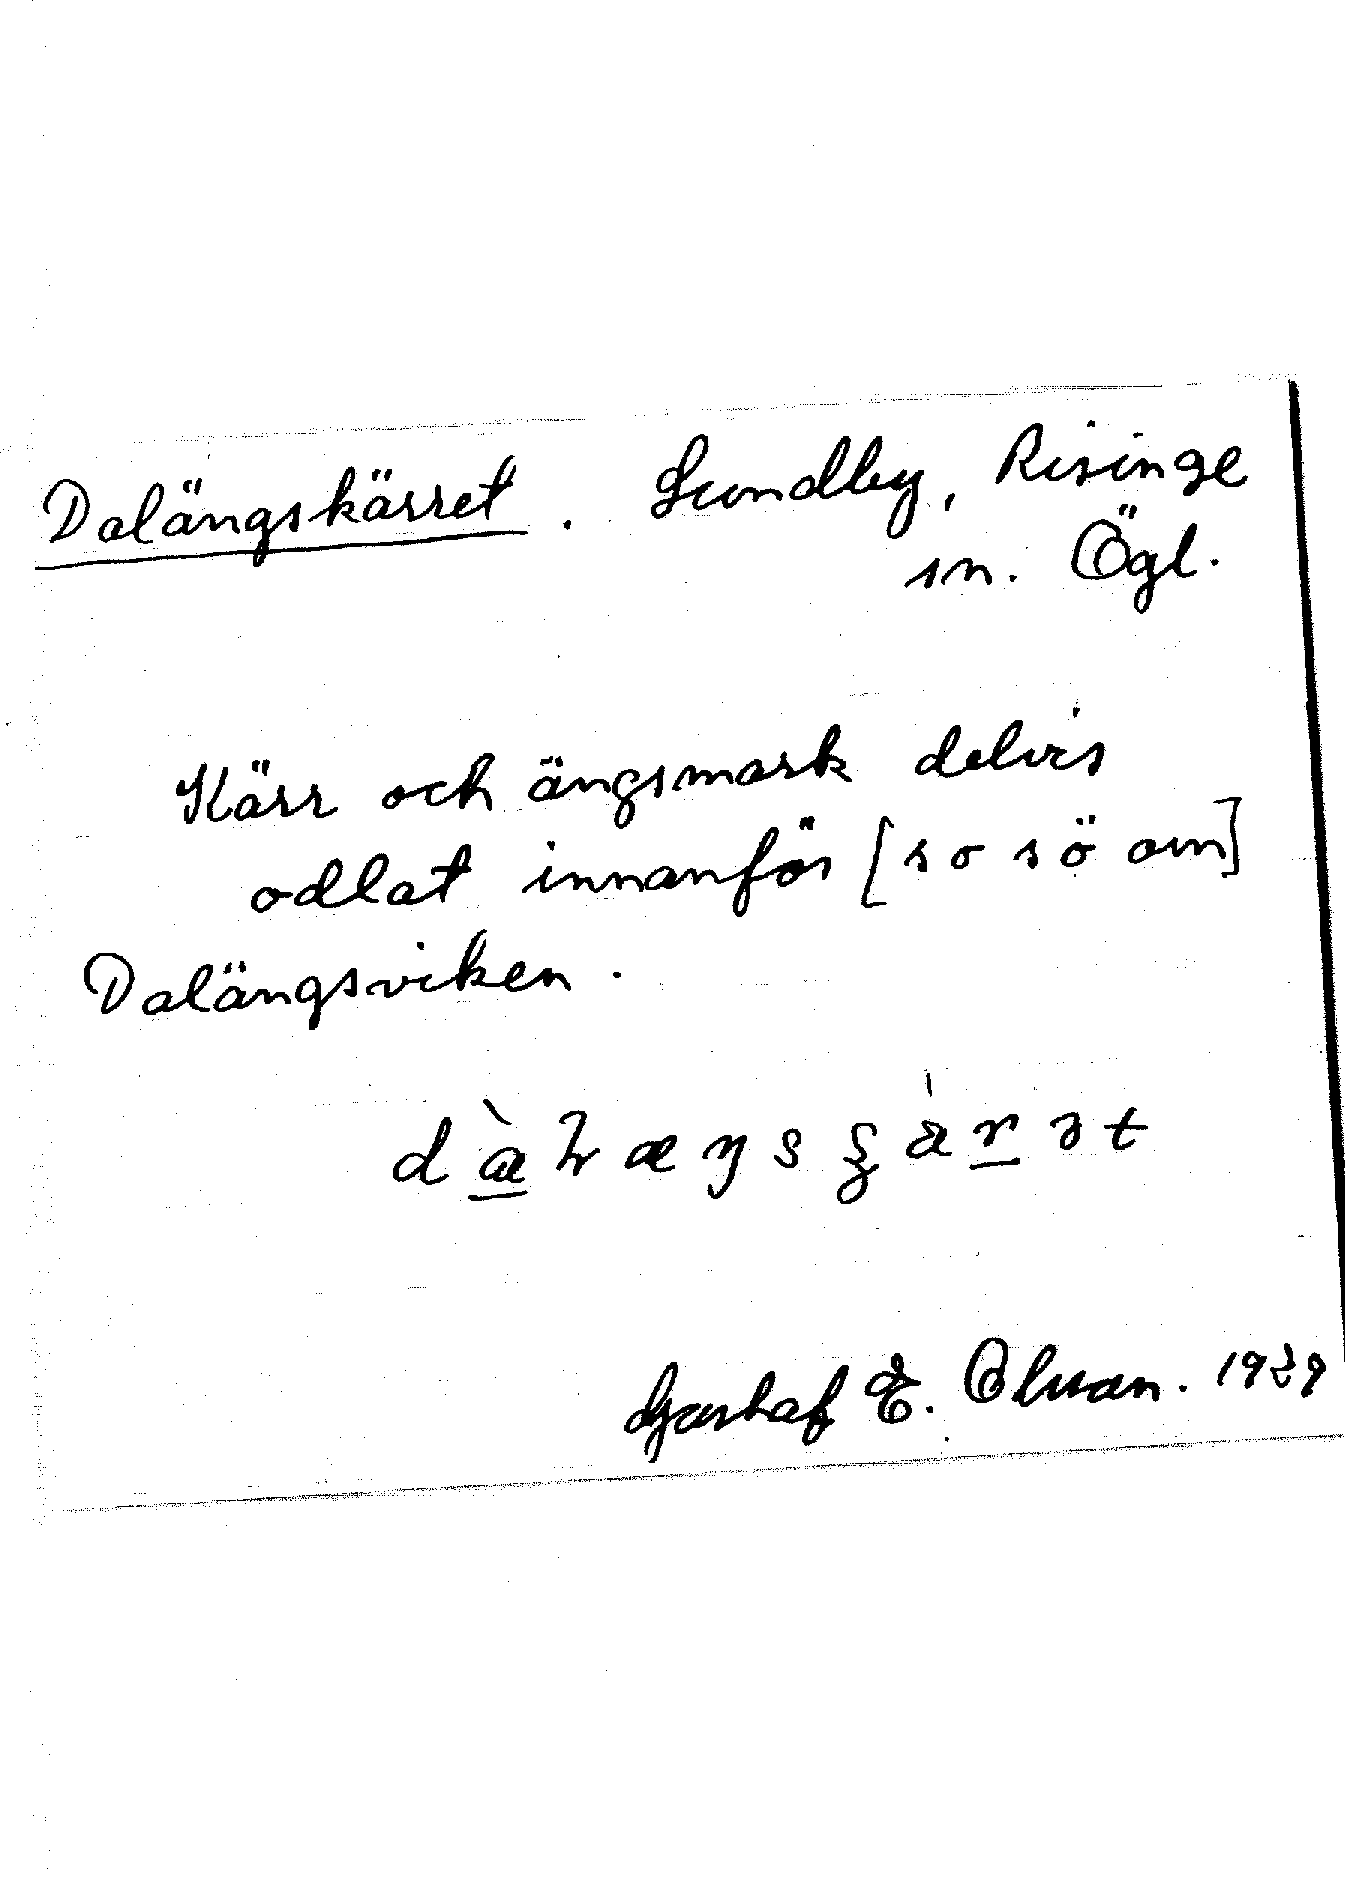 Dalängskärret. Lundby, Risinge
sn. Ögl.
Kärr och ängsmark delvis
odlat innanför [s o s ö om]
Dalängsviken.
Gustaf E. Ohman. 1929